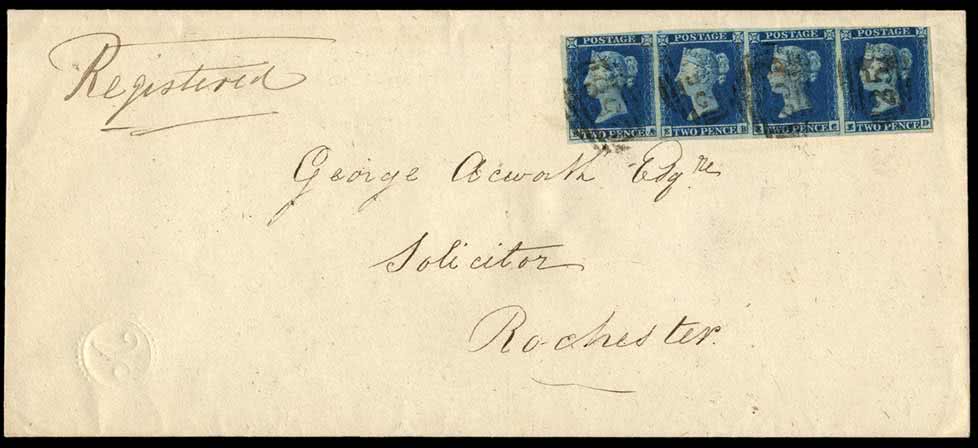 Registered
POSTAGE POSTAGE POSTAGE POSTAGE
TWO PENCE TWO PENCE TWO PENCE TWO PENCE
George Acworth Esqre
Solicitor
Rochester.